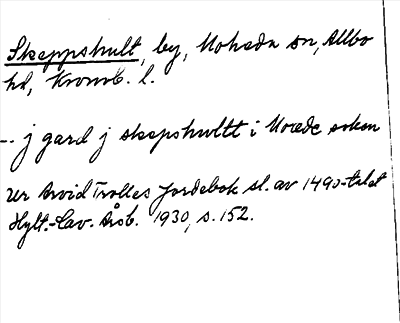 Skeppshult, by, Moheda sn, Allbo
hd, Kronob. l.
-- j gard j skepshultt i Moede soken
Ur Arvid Trolles Jordebok sl. av 1490-talet
Hylt.-Cav. Årsb. 1930, s. 152.